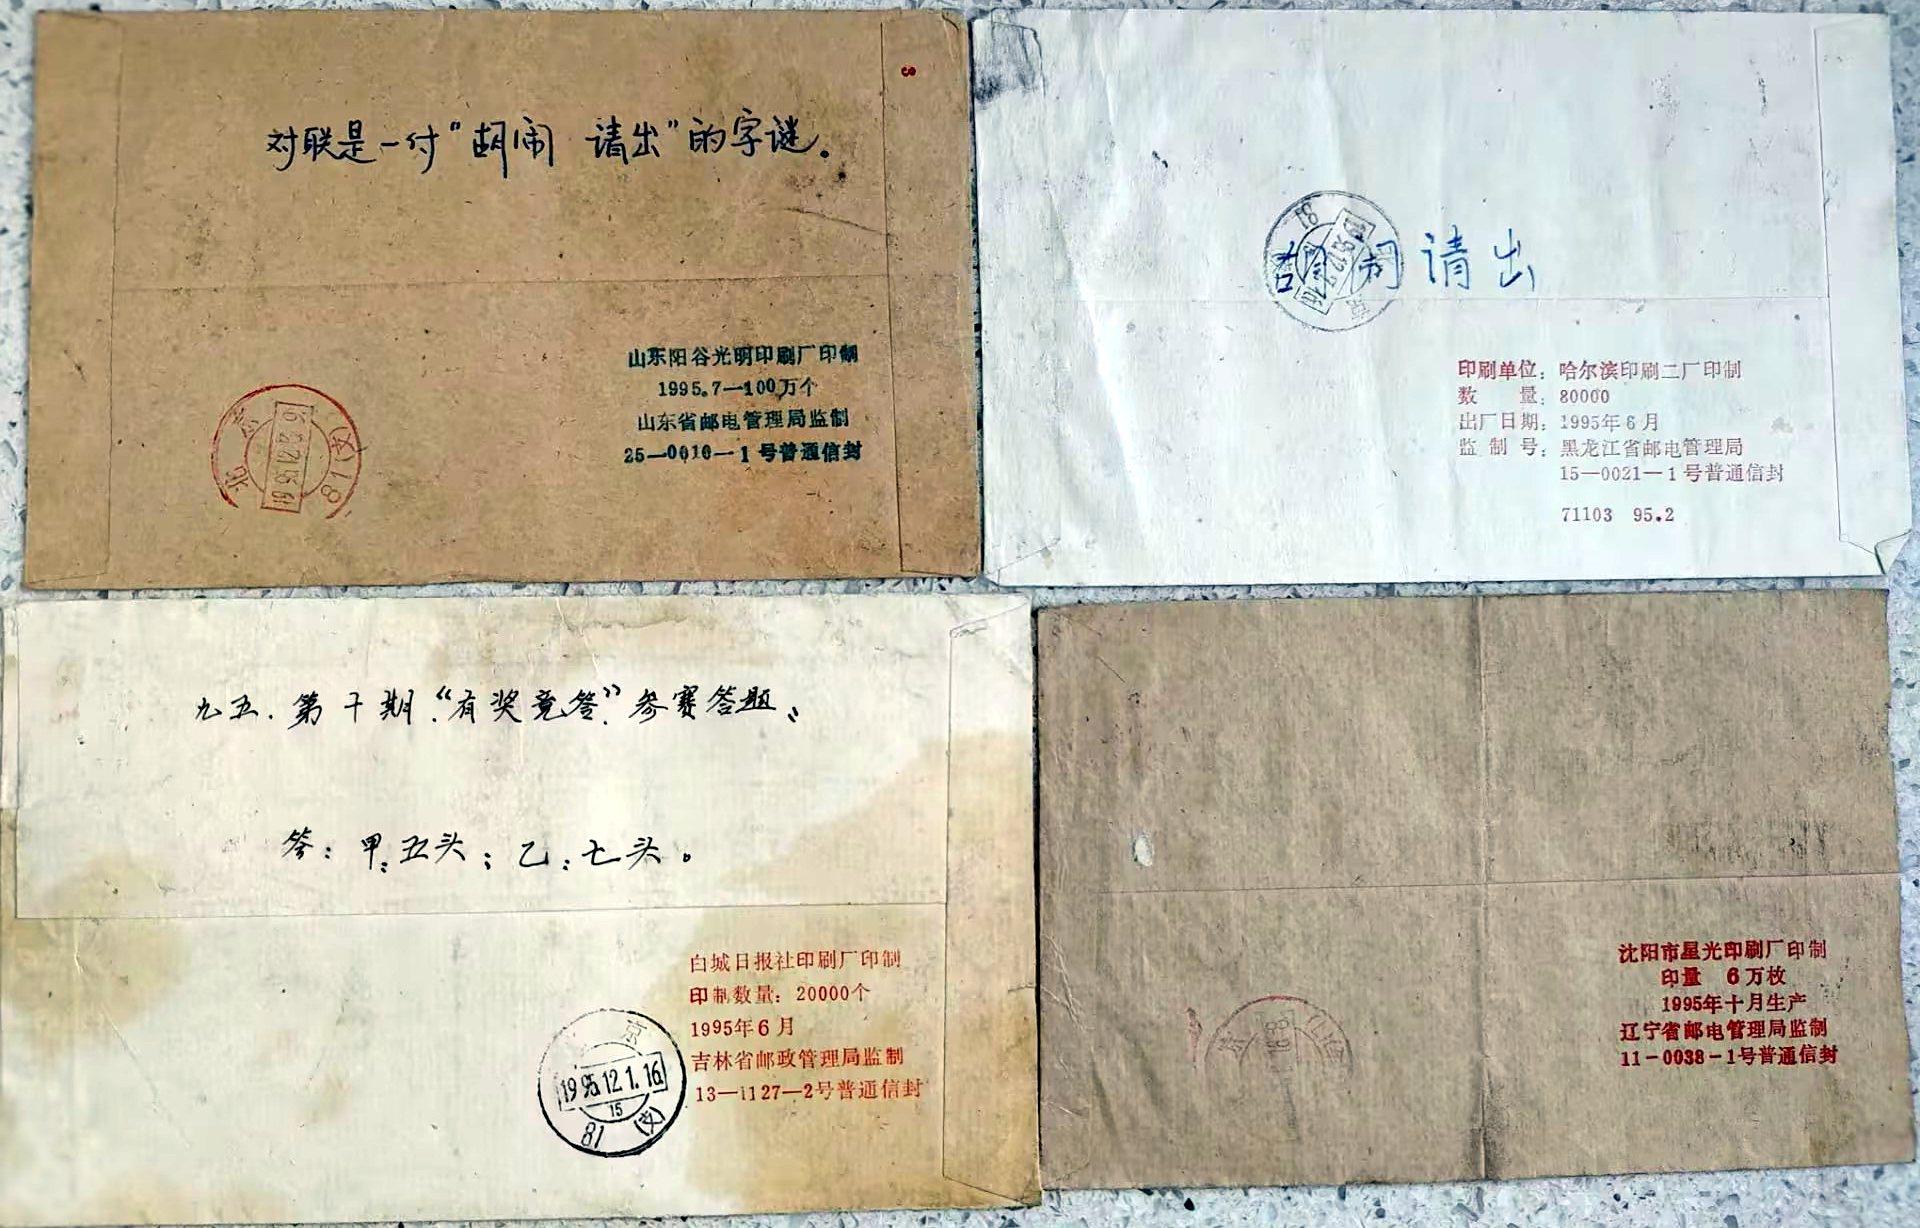 8
对联是一付“胡闹 请出”的字谜。
山东阳谷光明印刷厂印制
1995.7—100万个
山东省邮电管理局监制
25—0010—1号普通信封
北京
81(支)
胡闹请出
81
京
印刷单位：哈尔滨印刷二厂印制
数 量：80000
出厂日期：1995年6月
监制号：黑龙江省邮电管理局
15—0021—1号普通信封
71103 95.2
九五.第十期“有奖竞答”参赛答题：
答：甲：五头；乙：七头。
白城日报社印刷厂印制
印制数量：20000个
1995年6月
吉林省邮政管理局监制
13—1127—2号普通信封
京
1995.12.1.16
15
81 (支)
沈阳市星光印刷厂印制
印量 6万枚
1995年十月生产
辽宁省邮电管理局监制
11-0038-1号普通信封